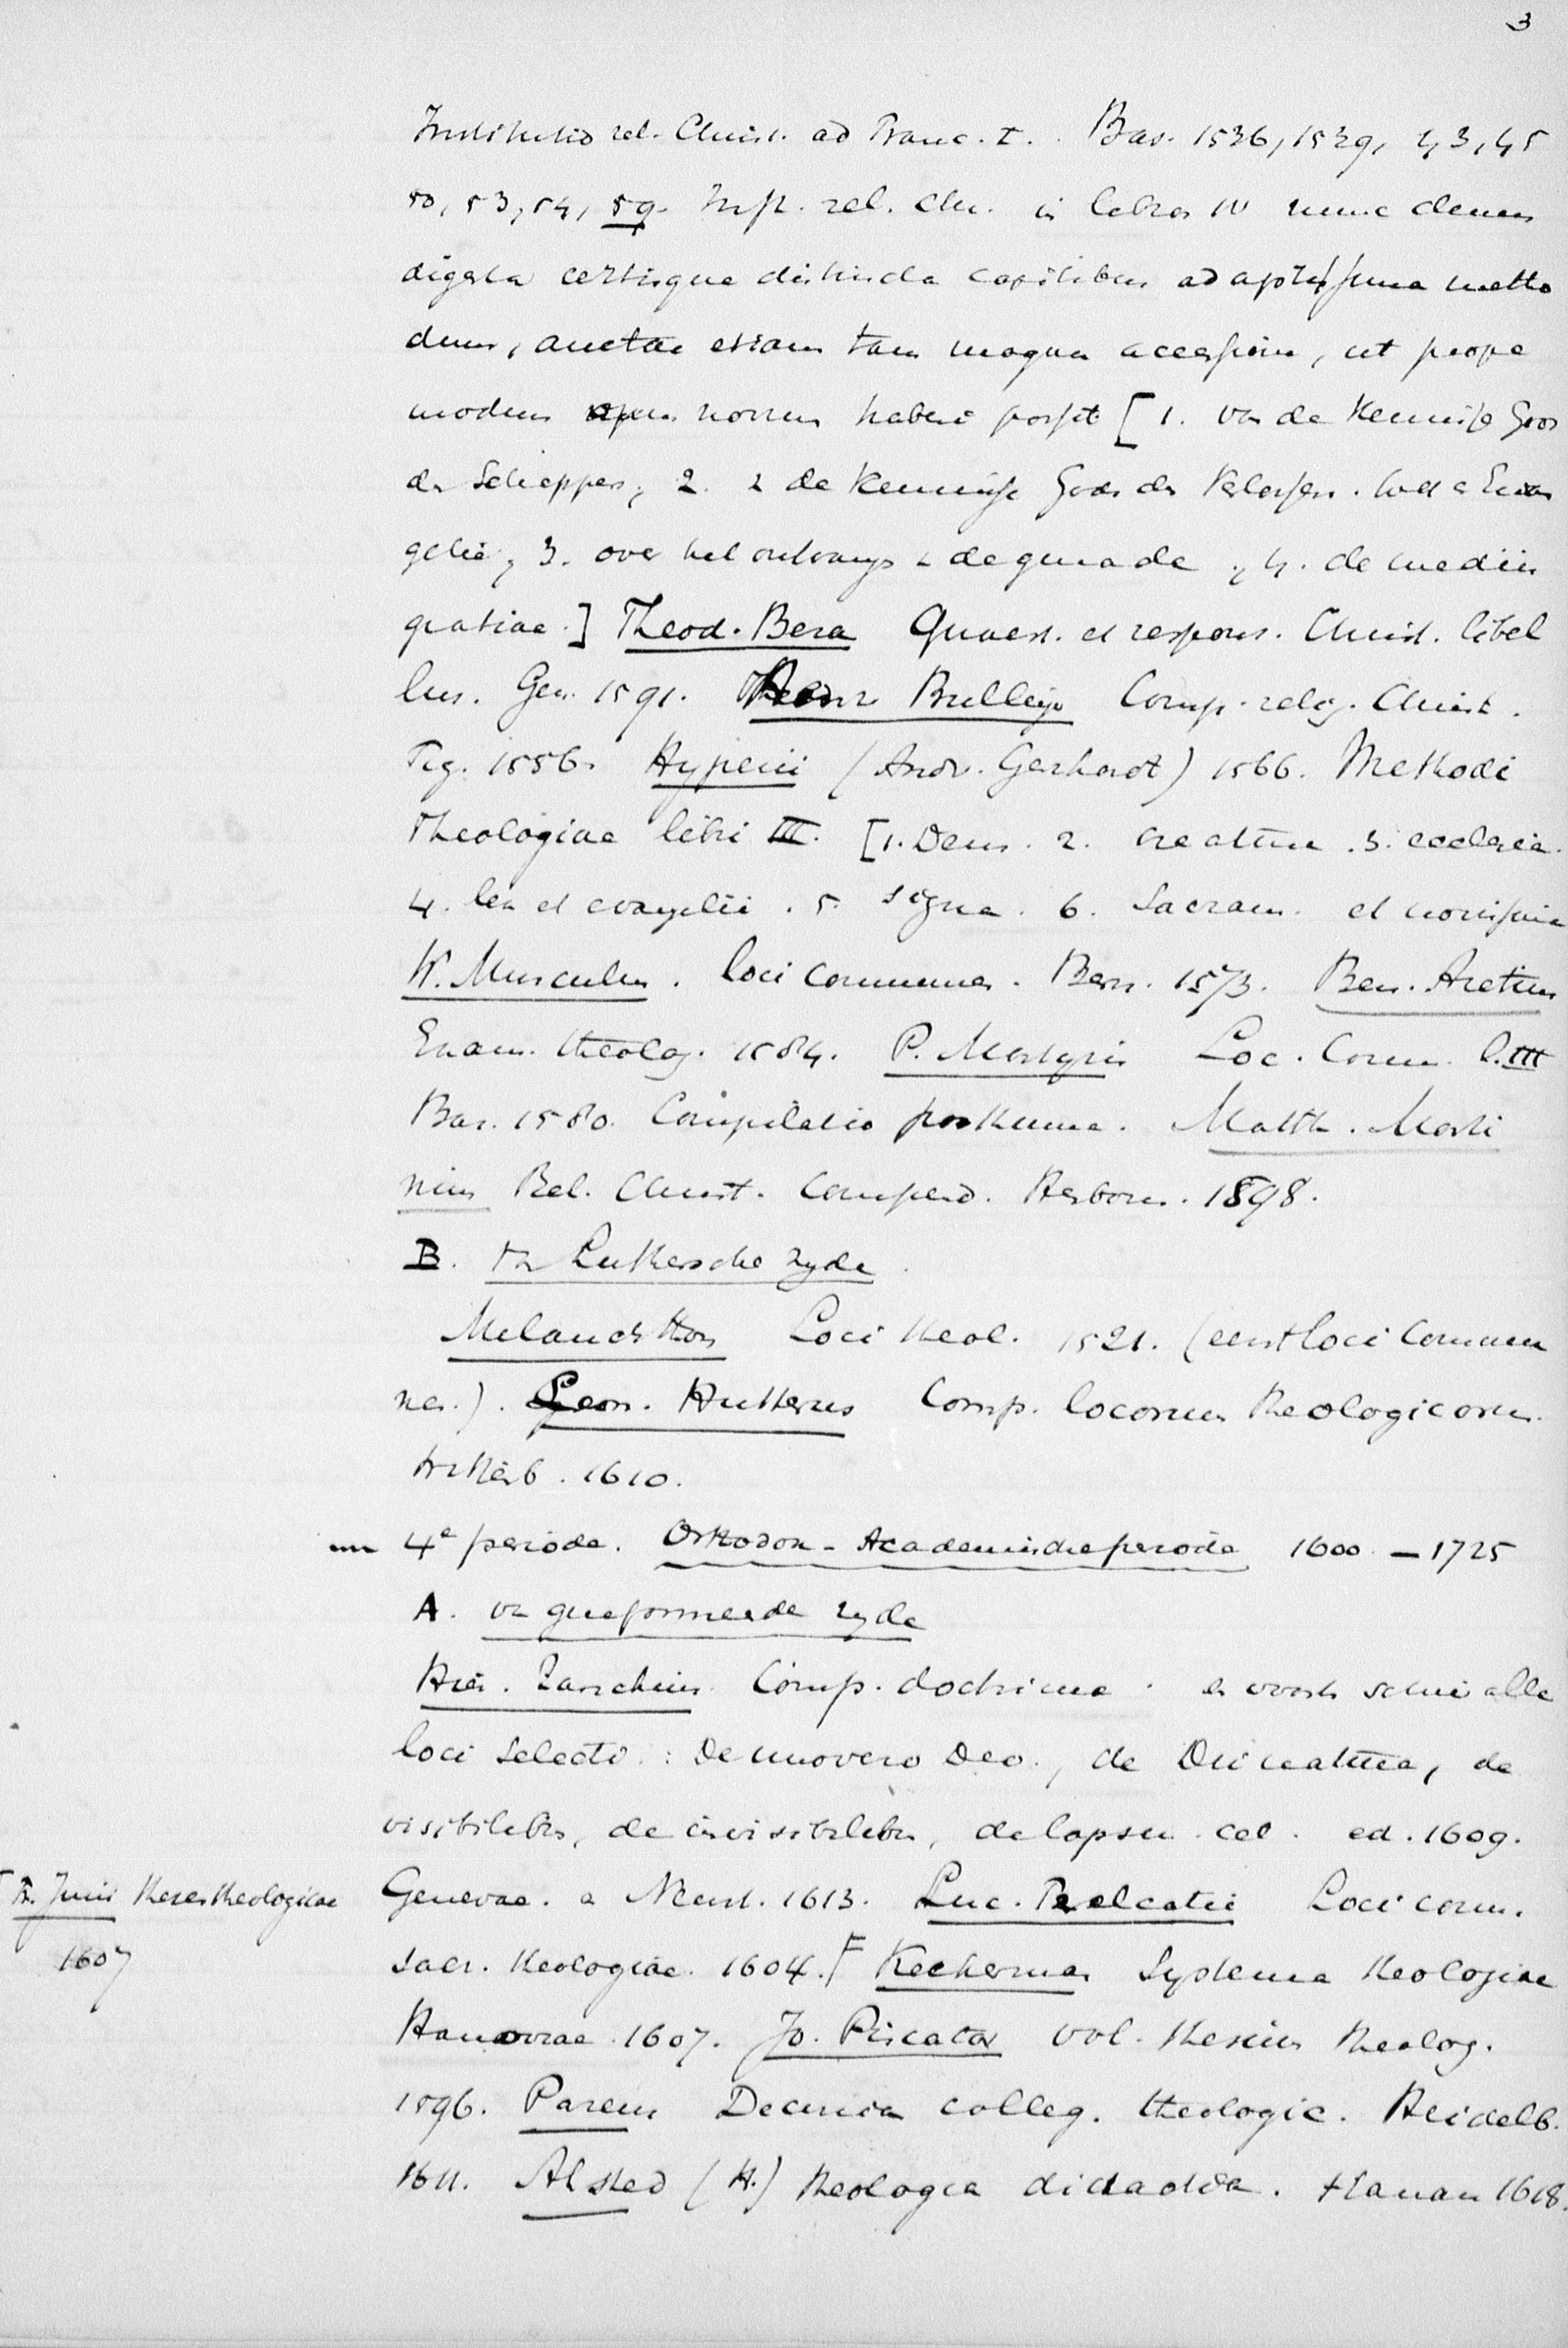 3
Institutio rel. Christ. ad Franc. I. Bas. 1536, 1539, 43, 45
50, 53, 54, 59. Inst. rel. chr. in libros IV nunc demum
digesta certisque distincta capitibus ad aptissima metho
dum, aucta etiam tam magna accessione, ut prope
modum opus novum haberi possit [1. van de Kennisse Gods
den Schepper; 2. v de Kennisse Gods den Verlosser. wet en Evan
gelie; 3. over het ontvangen v de genade; 4. de mediis
gratiae.] Theod. Beza Quaest. et respons. Christ. libel
lus. Gen. 1591. Heinr Bullinger Comp. relig. Christ.
Tig. 1556. Hyperii (Andr. Gerhardt) 1566. Methodi
Theologiae libri III. [1. Deus. 2. creatura. 3. ecclesia.
4. lex et evangelii. 5. signa. 6. Sacram. et novissima
W. Musculus. Loci communes. Bern. 1573. Ben. Aretius
Exam. theolog. 1584. P. Martyris Loc. Comm. l. III
Bas. 1580. Compilatio posthuma. Matth. Marti
nius Rel. Christ. Compend. Herborn. 1598.
B. van Luthersche zyde.
Melanchthon Loci theol. 1521. (eerst loci commun
nes.). Leon. Hutterus Comp. locorum theologicorum.
Witteb. 1610.
4e periode. Orthodox-Academische periode 1600 – 1725
A. van gereformeerde zyde
Hier. Zanchius Comp. doctrinae. en voorts schier alle
loci selecti: De uno vero Deo, de Dei natura, de
visibilibus, de invisibilibus, de lapsu. cet. ed. 1609.
Genevae. a Neust. 1613. Luc. Trelcatii Loci comm.
sacr. theologiae. 1604. F Keckerman Systema theologiae
Hanoviae 1607. Jo. Piscator vol. thesium theolog.
1596. Pareus Decuria colleg. theologic. Heidelb.
1611. Alsted (H.) theologia didactica. Hanau 1618.
F Fr. Junii theses theologicae
1607